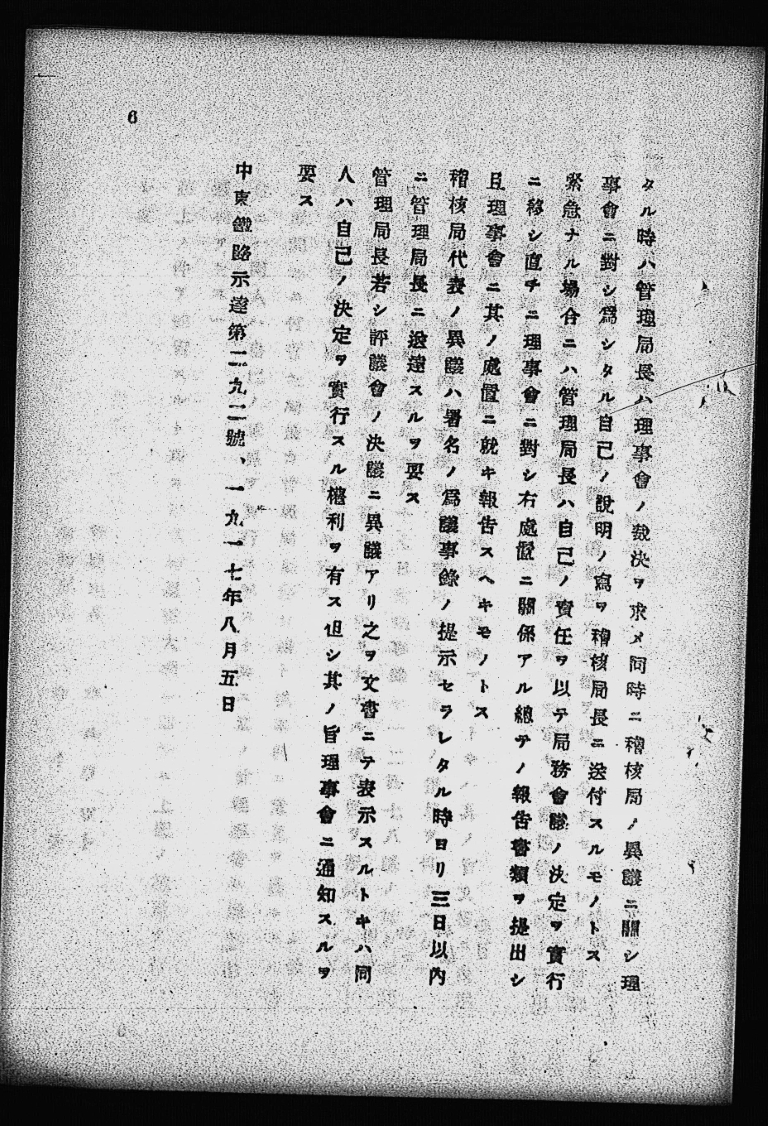 タル時ハ管理局長ハ理事會ノ裁決ヲ求メ同時ニ稽核局ノ異議ニ關シ理
事會ニ對シ爲シタル自己ノ說明ノ寫ヲ稽核局長ニ送付スルモノトス
緊急ナル場合ニハ管理局長ハ自己ノ責任ヲ以テ局務會議ノ決定ヲ實行
ニ移シ直チニ理事會ニ對シ右處置ニ關係アル總テノ報告書類ヲ提出シ
且理事會ニ其ノ處置ニ就キ報告スヘキモノトス
稽核局代表ノ異議ハ署名ノ爲議事錄ノ提示セラレタル時ヨリ三日以內
ニ管理局長ニ送達スルヲ要ス
管理局長若シ評議會ノ決議ニ異議アリ之ヲ文書ニテ表示スルトキハ同
人ハ自己ノ決定ヲ實行スル權利ヲ有ス但シ其ノ旨理事會ニ通知スルヲ
要ス
中東鐵路示達第二九二號、一九一七年八月五日
6